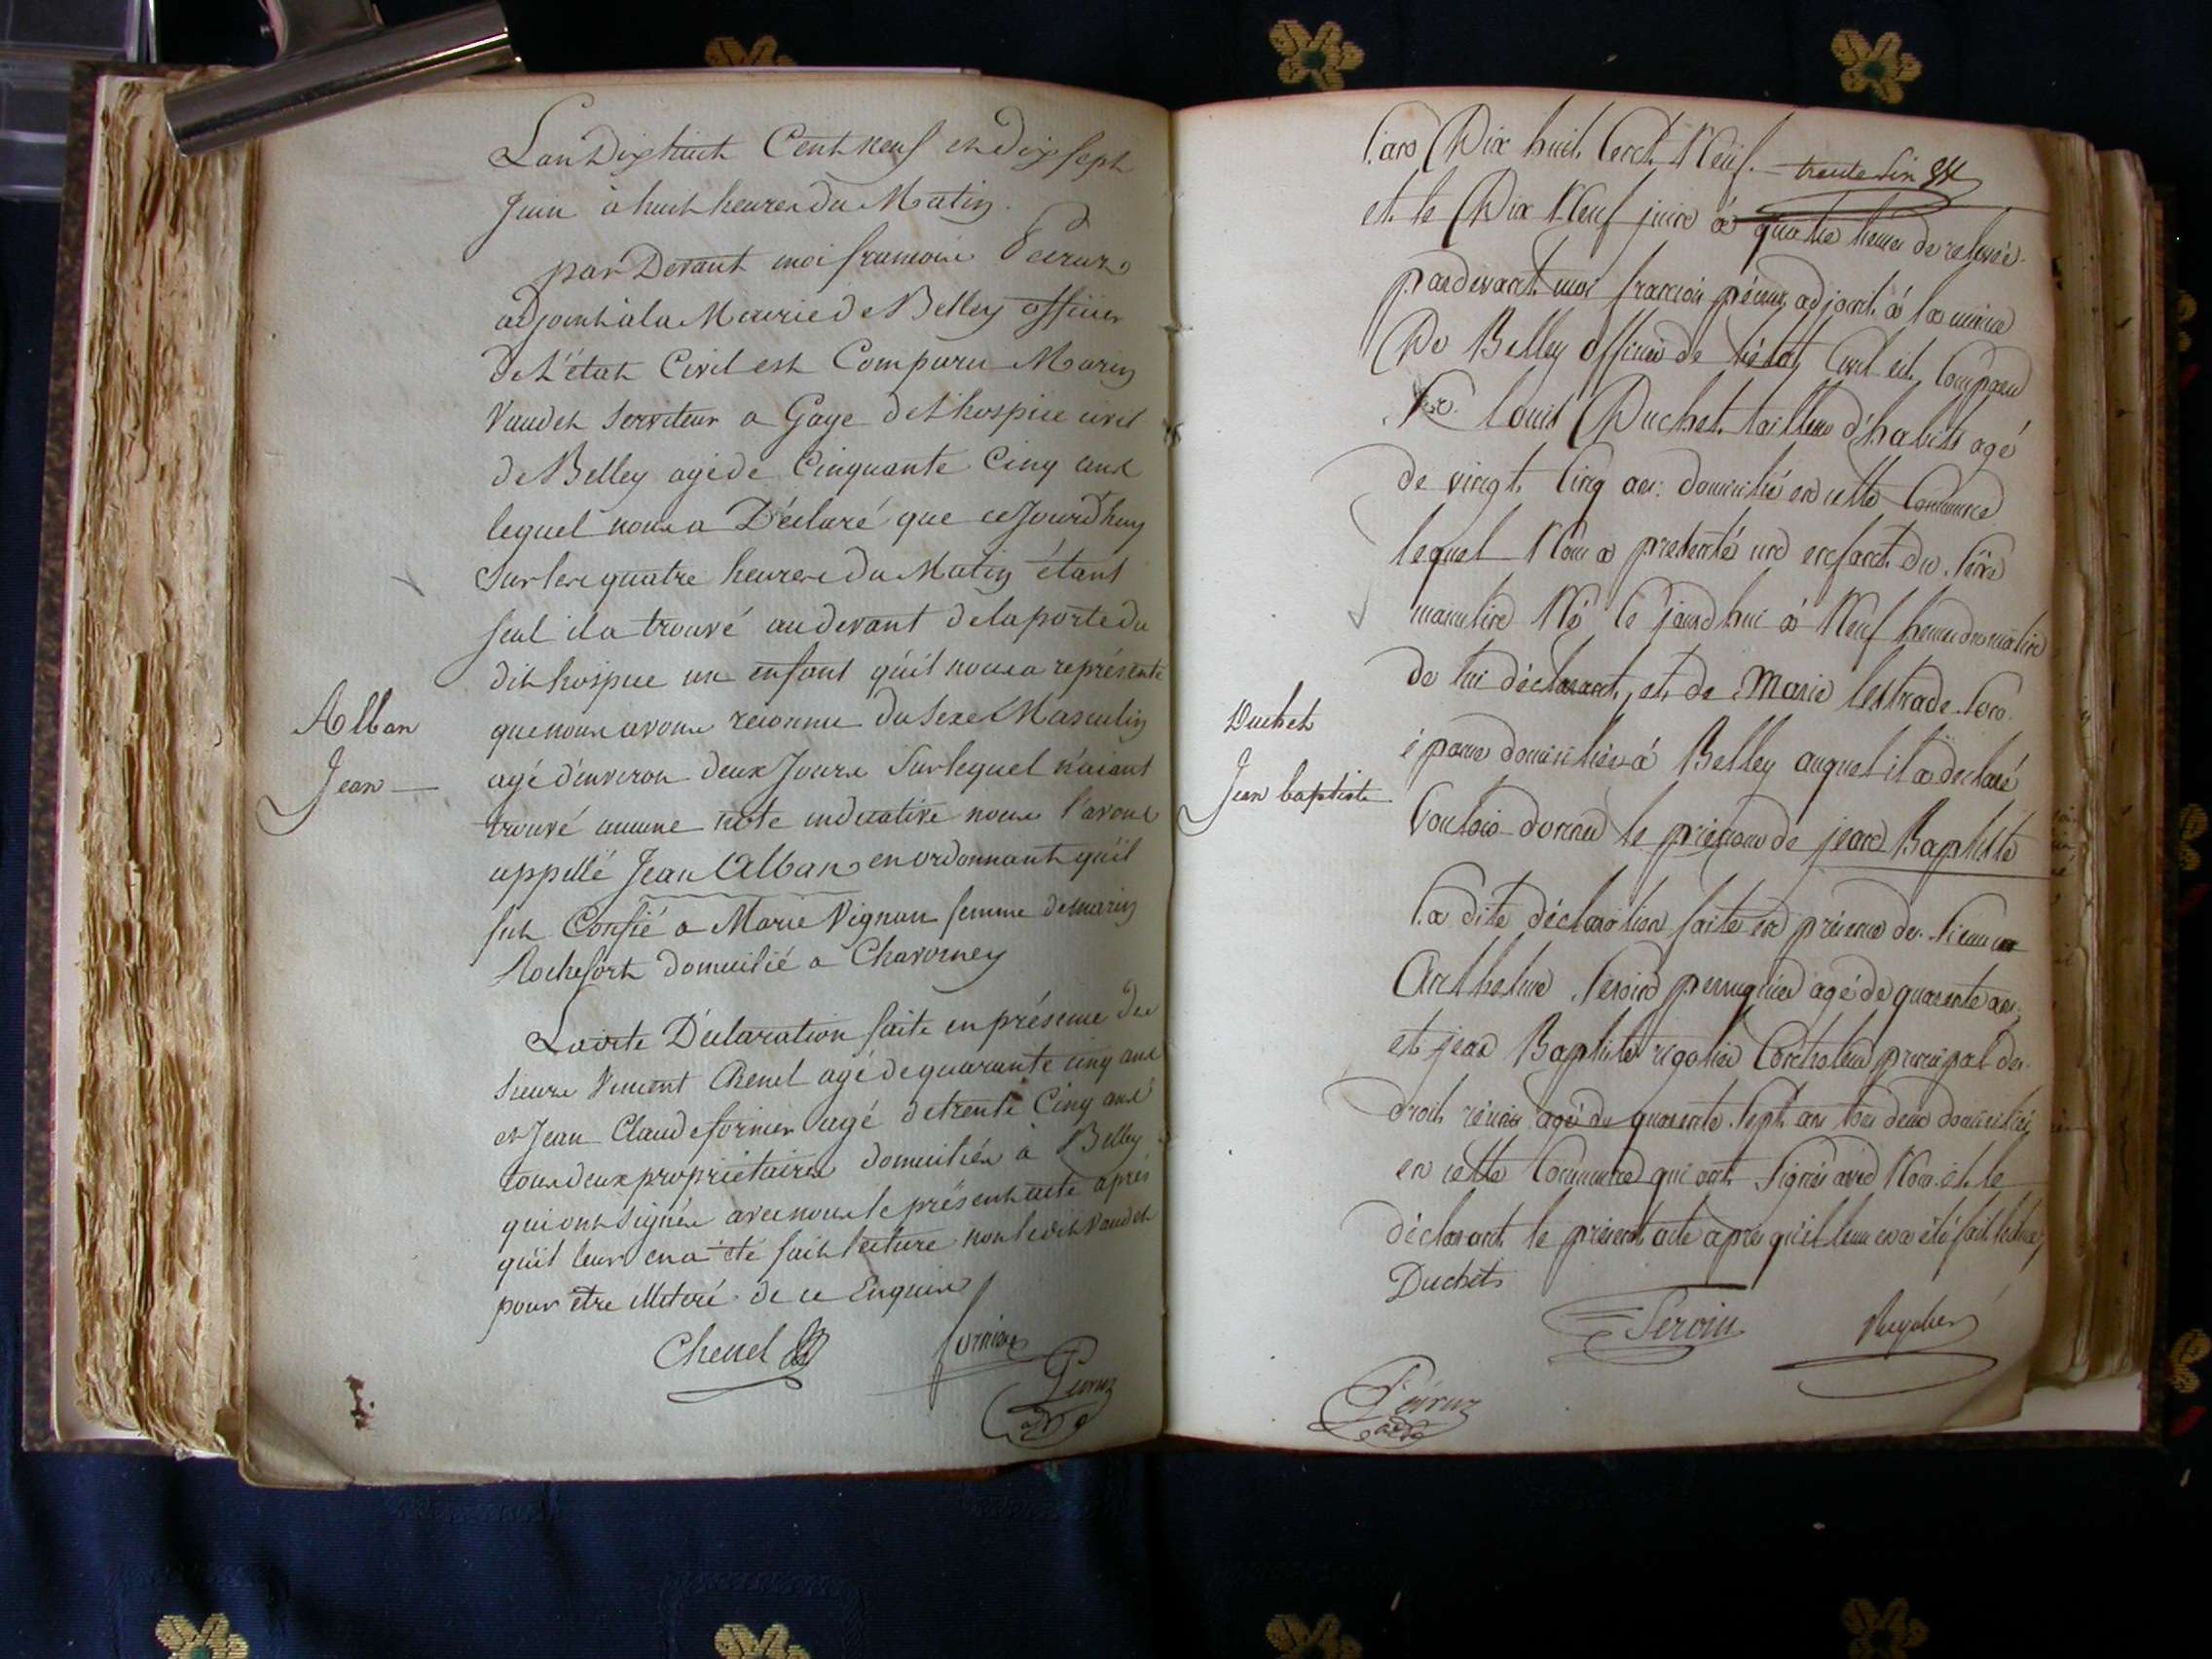 L'an Dix huit Cent neuf et Dix sept
Juin à huit heures du Matin.
par Devant moi francois Peïruz
adjoint à la Mairie de Belley officier
de L'état Civil est Comparu Marin
Vaudet Serviteur a Gage de l'hospice civil
de Belley agé de Cinquante Cinq ans
lequel nous a Déclaré que cejourd'huy
Sur les quatre heures du Matin étant
seul il a trouvé au devant de la porte du
dit hospice un enfant qu'il nous a représenté
que nous avons reconnu du Sexe Masculin
Alban
Jean
agé d'environ deux Jours Sur lequel n'aiant
trouvé aucune note indicative nous l'avons
appellé Jean Alban en ordonnant qu'il
fut Confié a Marie Vignon femme de marin
Rochefort domicilié a Chavorney
La dite Déclaration faite en présence des
Sieurs Vincent Chenel agé de quarante cinq ans
et Jean Claude fornier agé de trente Cinq ans
tous deux propriétaires domiciliés à Belley
qui ont signés avec nous le présent acte après
qu'il leur en a été fait lecture non le dit Vaudet
pour être illiteré de ce Enquis
Chenel
fornier
Peïruz
adj
L'an Dix huit Cent Neuf. trente six
et le Dix Neuf juin à quatre heures de relevée
pardevant moi francois péïruz adjoint à la mairie
De Belley officier de l'état Civil est Comparu
Sr. louis Duchet tailleur d'habits agé
de vingt Cinq ans domicilié en cette Commune
lequel Nous a présenté un enfant du Sexe
masculin Né Ce jourd'hui à Neuf heures du matin
de lui déclarant, et de Marie lestrade son
Duchet
Jean baptiste
épouse domiciliés à Belley auquel il a déclaré
Vouloir donner le prénom de jean Baptiste
La dite déclaration faite en présence des Sieurs
Anthelme Seroin perruquier agé de quarente ans
et jean Baptiste rigolier Controleur principal des
droits réunis agé de quarente Sept ans tous deux domiciliés
en cette Commune qui ont Signés avec Nous et le
déclarant le présent acte après qu'il leur en a été fait lecture
Duchet
Seroin
Peïruz
adj